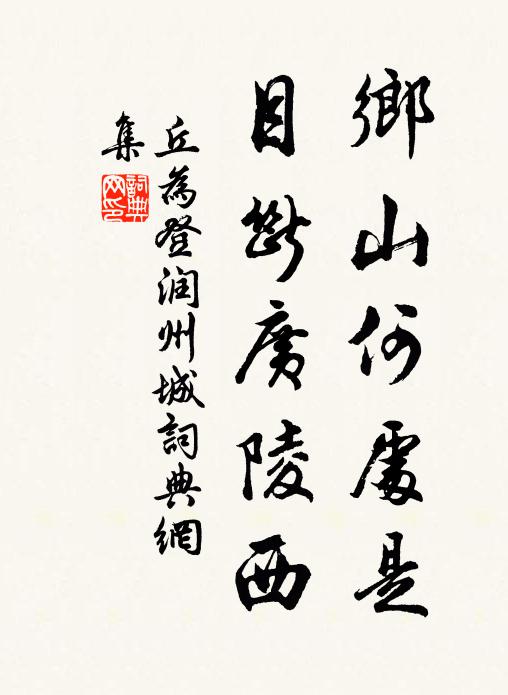 鄉山何處是
目斷廣陵西
丘為登润州城詞典網
集
詞典
网印